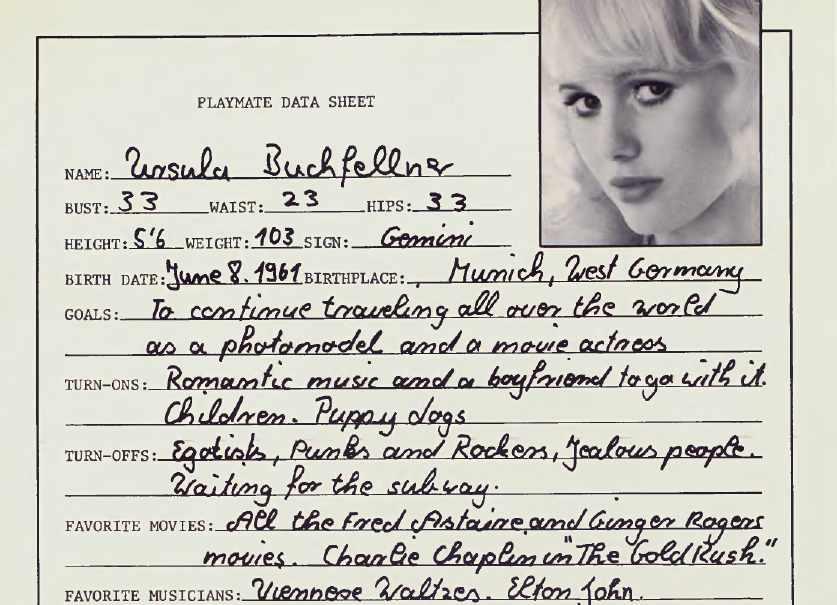 PLAYMATE DATA SHEET
NAME: Ursula Buchfellner
BUST: 33 WAIST: 23 HIPS: 33
HEIGHT: 5'6 WEIGHT: 103 SIGN: Gemini
BIRTH DATE: June 8. 1961 BIRTHPLACE: Munich, West Germany
GOALS: To continue traveling all over the world
as a photomodel and a movie actress
TURN-ONS: Romantic music and a boyfriend to go with it.
Children. Puppy dogs
TURN-OFFS: Egotists, Punks and Rockers, Jealous people.
Waiting for the subway.
FAVORITE MOVIES: All the Fred Astaire and Ginger Rogers
movies. Charlie Chaplin in "The Gold Rush."
FAVORITE MUSICIANS: Viennese Waltzes. Elton John.